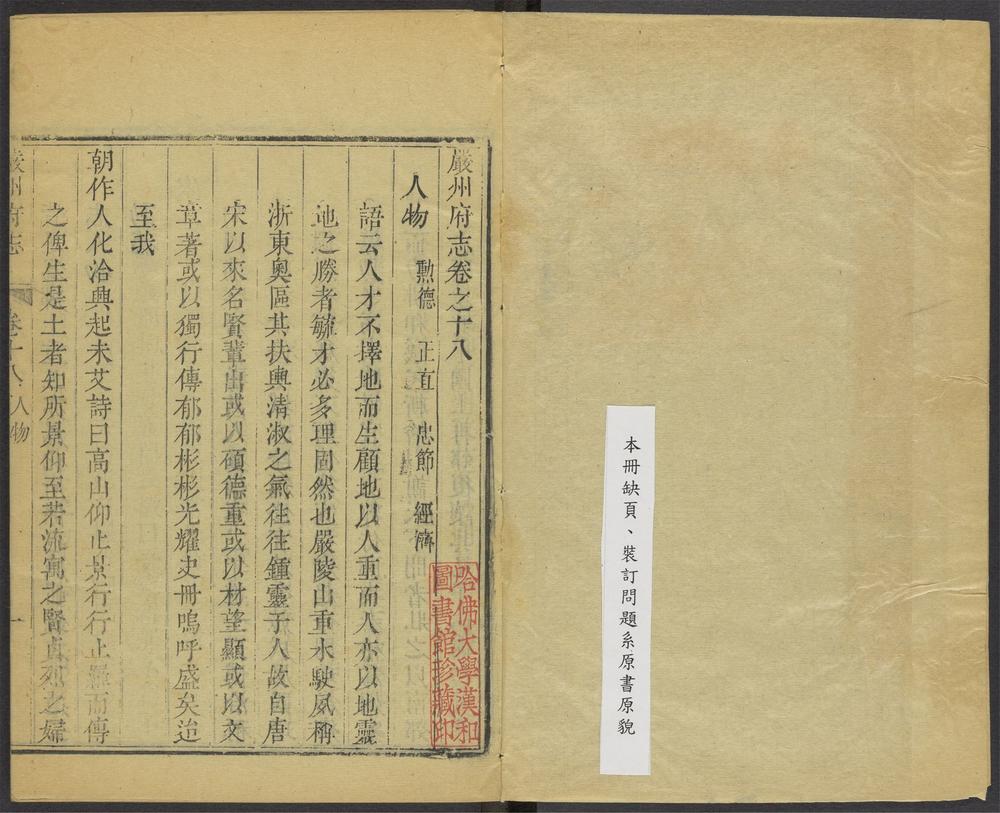 本冊缺頁、裝訂問題系原書原貌
嚴州府志卷之十八
哈佛大學漢和
圖書館珍藏印
人物 勳德 正直 忠節 經濟
語云人才不擇地而生顧地以人重而人亦以地靈
地之勝者毓才必多理固然也嚴陵山重水駛夙稱
浙東奧區其扶輿清淑之氣往往鍾靈于人故自唐
宋以來名賢輩出或以碩德重或以材望顯或以文
章著或以獨行傳郁郁彬彬光耀史冊嗚呼盛矣迨
至我
朝作人化洽興起未艾詩曰高山仰止景行行止羅而傳
之俾生是土者知所景仰至若流寓之賢貞烈之婦
嚴州府志 卷十八 人物 一